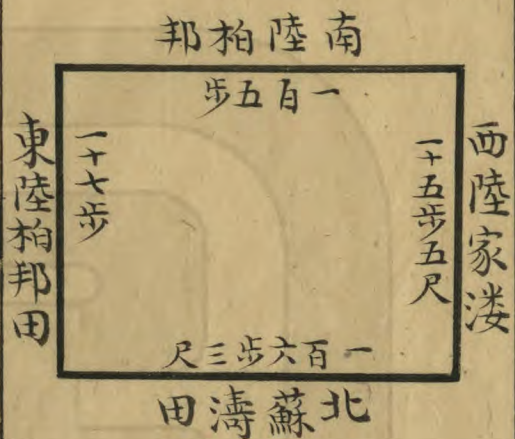 南陸柏邦
一百五步
西陸家溇
一十五步五尺
一十七步
東陸柏邦田
一百六步三尺
北蘇濤田